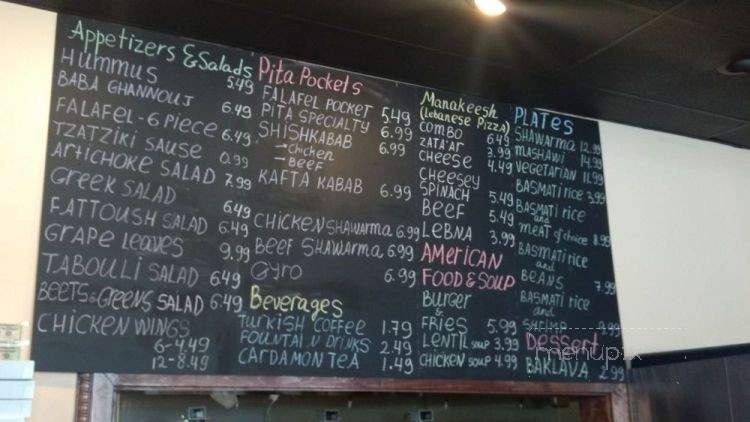 Appetizers & Salads
HUMMUS 5.49
BABA GHANNOUJ 6.49
FALAFEL - 6 PIECE 6.49
TZATZIKI SAUSE 0.99
ARTICHOKE SALAD 7.99
GREEK SALAD 6.49
FATTOUSH SALAD 6.49
GRAPE LEAVES 9.99
TABOULI SALAD 6.49
BEETS & GREENS SALAD 6.49
CHICKEN WINGS
6 - 4.49
12 - 8.49
Pita Pockets
FALAFEL POCKET 5.49
PITA SPECIALTY 6.99
SHISHKABAB 6.99
→ chicken
→ BEEF
KAFTA KABAB 6.99
CHICKEN SHAWARMA 6.99
BEEF SHAWARMA 6.99
GYRO 6.99
Beverages
TURKISH COFFEE 1.79
FOUNTAIN DRINKS 2.49
CARDAMON TEA 1.49
Manakeesh
(Lebanese Pizza)
COMBO 6.49
ZATA'AR 3.99
CHEESE 4.49
CHEESEY
SPINACH 5.49
BEEF 5.49
LEBNA 3.99
AMERICAN
FOOD & SOUP
BURGER
&
FRIES 5.99
LENTIL SOUP 3.99
CHICKEN SOUP 4.99
PLATES
SHAWARMA 12.99
MASHAWI 14.99
VEGETARIAN 11.99
BASMATI RICE 3.99
BASMATI RICE
and
MEAT of choice 8.99
BASMATI RICE
and
BEANS 7.99
BASMATI RICE
and
SHRIMP 9.99
Dessert
BAKLAVA 2.99
menupix